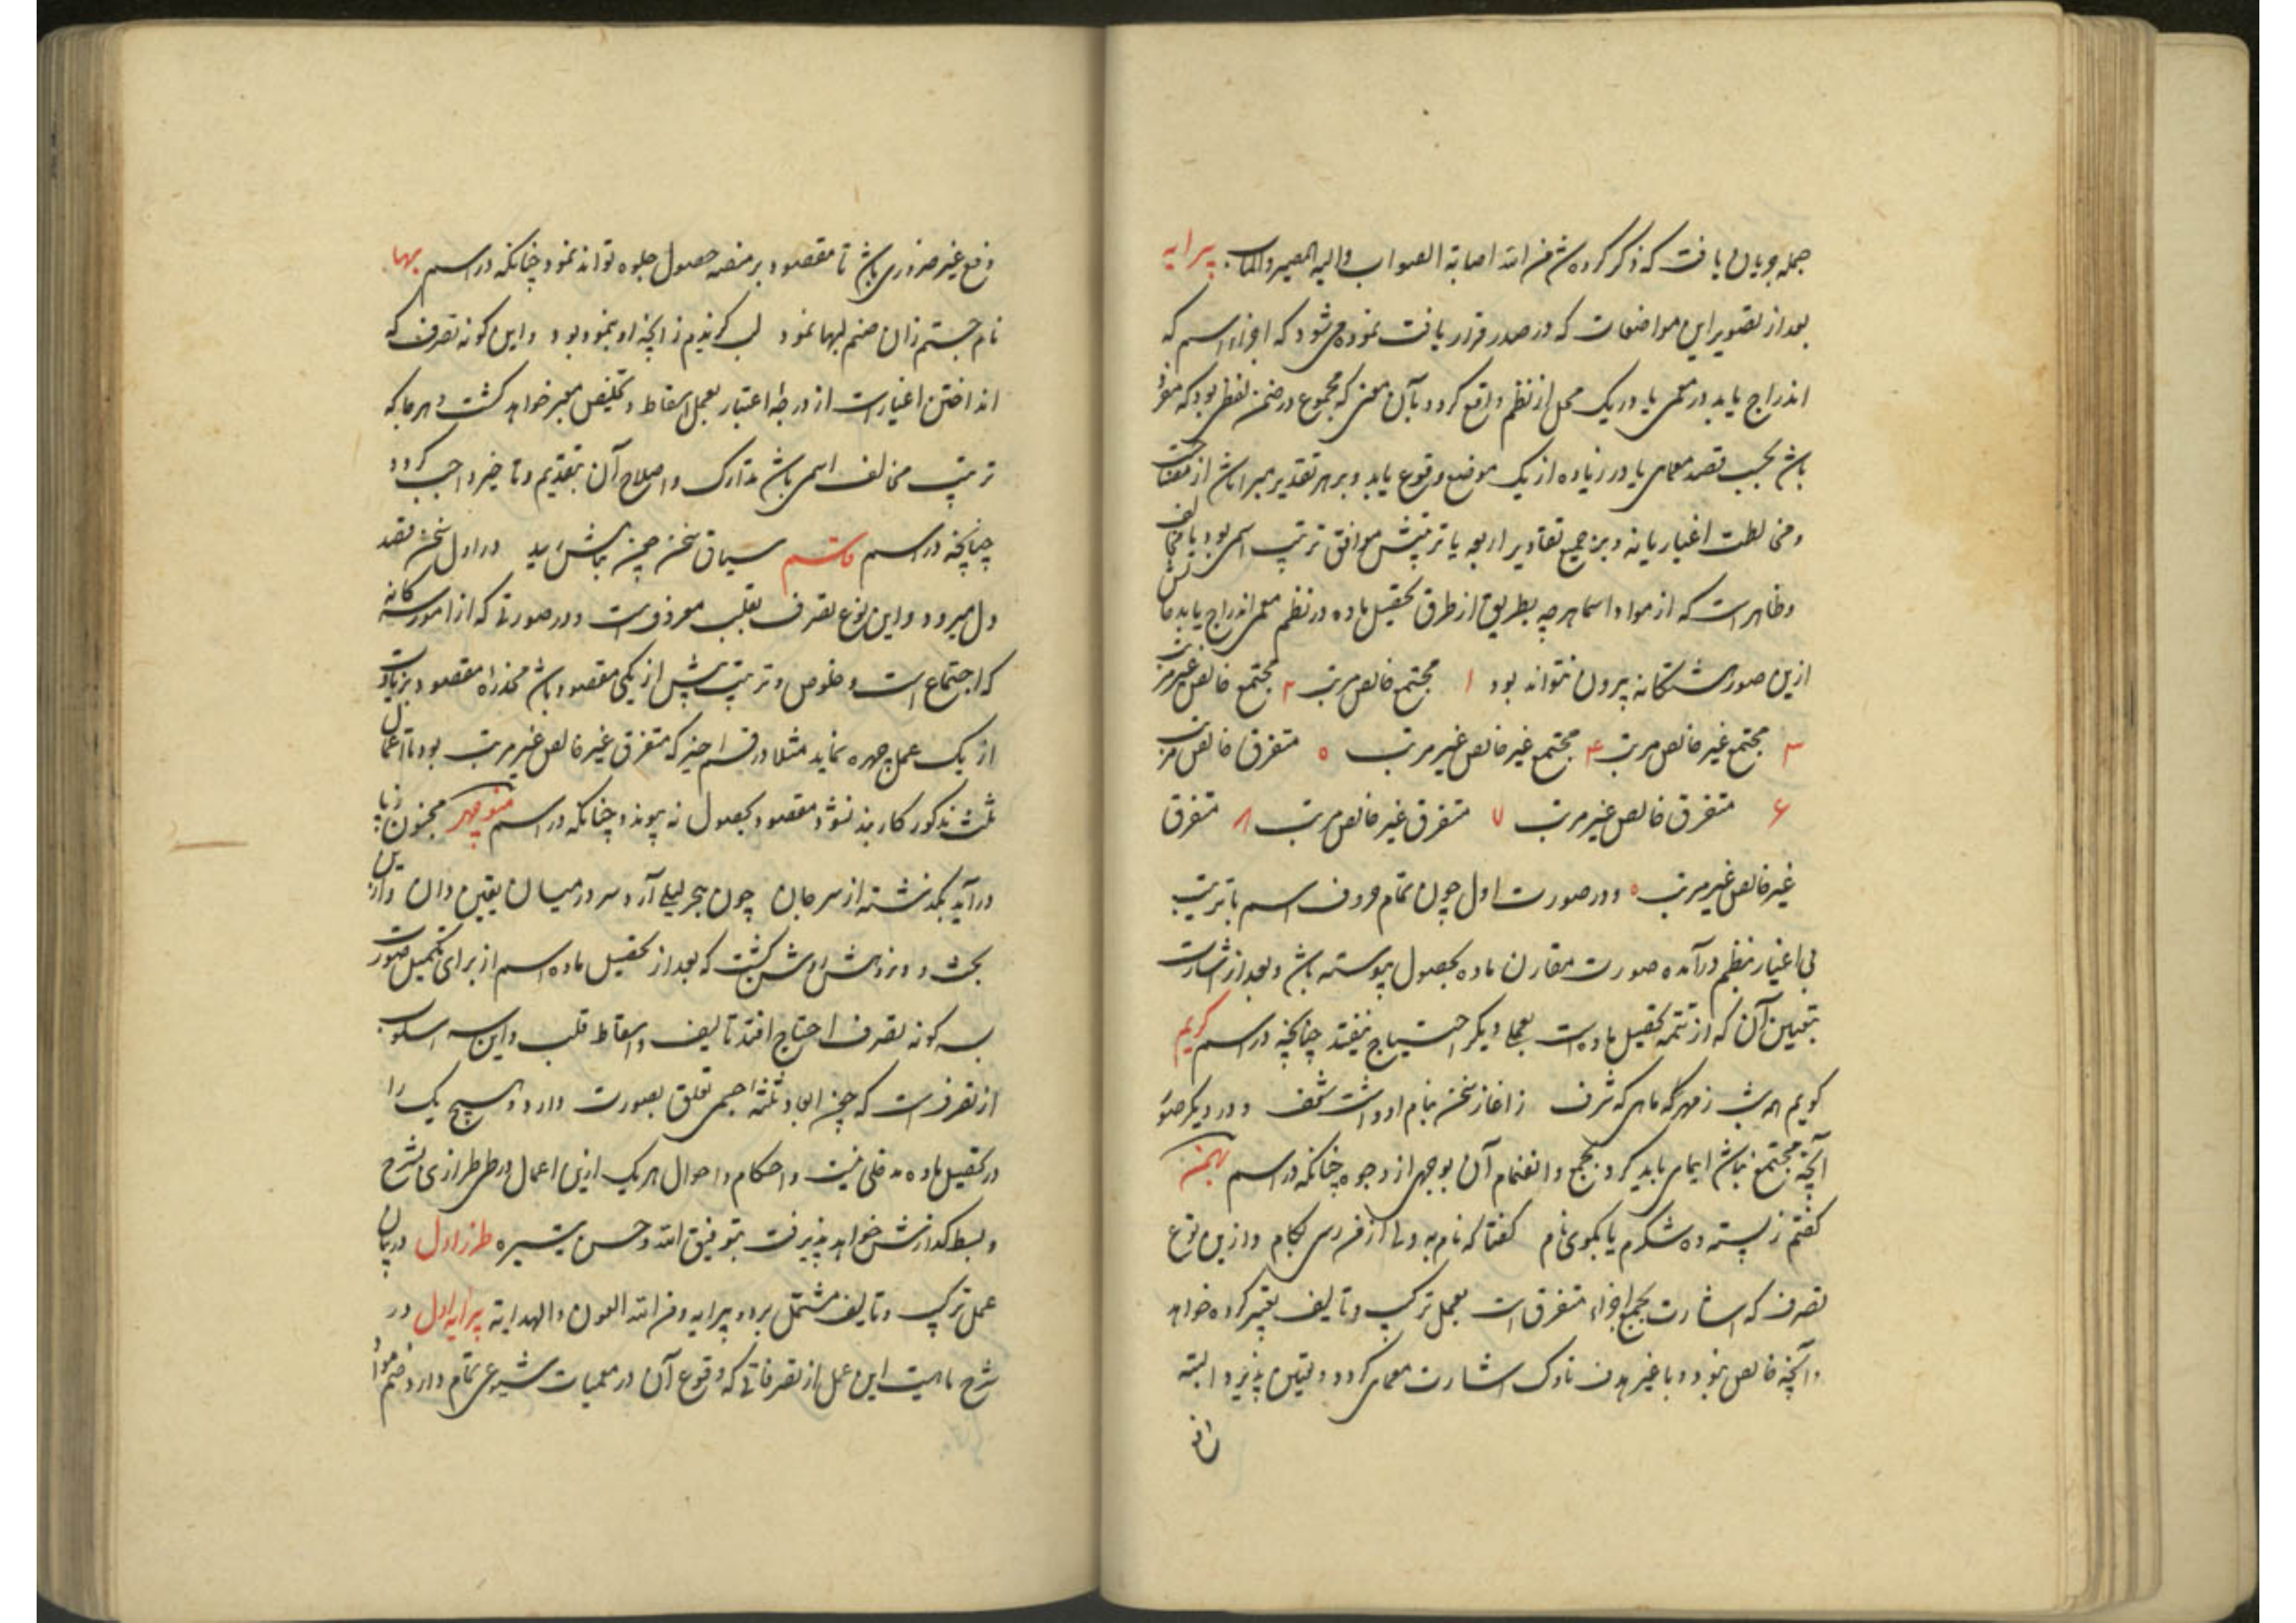 جمله جویان یافت که ذکر کرده شد من الله اصابة الصواب والیه المصیر والمآب پیرایه
بعد از تصویر این مواضعات که در صدر قرار یافت نموده می شود که اجزاء اسم که
اندراج یابد در معمی یا در یک محل از نظم واقع گردد بآن معنی که مجموع در ضمن لفظی بود که مفرد
باشد بحسب قصد معمایی یا در زیاده از یک موضع وقوع یابد و بر هر تقدیر مبرا باشد از
ومخالطت اغیار یا نه و بر جمیع تقادیر اربعه یا ترتیبش موافق ترتیب اسمی بود یا مخالف
وظاهرست که از مواد اسما هرچه بطریقی از طرق تحصیل ماده در نظم معمی اندراج یابد حالش
ازین صور هشتگانه بیرون نتواند بود ۱ مجتمع خالص مرتب ۲ مجتمع خالص غیر مرتب
۳ مجتمع غیر خالص مرتب ۴ مجتمع غیر خالص غیر مرتب ۵ متفرق خالص مرتب
۶ متفرق خالص غیر مرتب ۷ متفرق غیر خالص مرتب ۸ متفرق
غیر خالص غیر مرتب ودر صورت اول چون تمام حروف اسم با ترتیب
بی اغیار بنظم درآمده صورت مقارن ماده بحصول پیوسته باشد وبعد از اشارت
بتعیین آن که از تتمه تحصیل ماده است بعملی دیگر احتیاج نیفتد چنانچه در اسم کریم
گویم همه شب ز مهر که ماهی که شرف ز اغاز سخن بنام او داشت شغف و در دیگر صور
آنچه مجتمع نباشد ایمایی باید کرد بجمع وانضمام آن بوجهی از وجوه چنانکه در اسم بهمن
گفتم ز پسته ده شکرم یا بگوی نام گفتا که نام به دلی از من رسی بکام وازین نوع
تصرف که اشارت بجمع اجزاء متفرق است بعمل ترکیب وتالیف تعبیر کرده خواهد
وآنچه خالص نبود و با غیر هدف ناوک اشارت معمایی گردد وتعیین پذیرد البته
ان
دفع غیر ضروری باشد تا مقصود بر منصه حصول جلوه تواند نمود چنانکه در اسم بها
نام جستم زان صنم لبها نمود لب گزیدم زانچه او بنمود بود واین گونه تصرف که
انداختن اغیارست از درجه اعتبار بعمل اسقاط وتخلیص معبر خواهد گشت وهرجا که
ترتیب مخالف اسمی باشد تدارک واصلاح آن بتقدیم وتاخیر واجب گردد
چنانچه در اسم قاسم سیاق سخن چین بماش ید در اول سخن نقد
دل میرود واین نوع تصرف بقلب معروفست ودر صورتی که از امور سه گانه
که اجتماع است وخلوص وترتیب بیش از یکی مقصود باشد مخدره مقصود بزیادت
از یک عمل چهره نماید مثلا در قسم اخیر که متفرق غیر خالص غیر مرتب بود تا اعمال
ثلث مذکور کار بند نشود مقصود بحصول نه پیوندد چنانکه در اسم منوچهر مجنون ز پا
درآید بگذشته از سر جان چون هجر لیلی آرد سر در میان یقین دان وازین
بحث و روشن گشت که بعد از تحصیل ماده اسم از برای تکمیل صورت
بسه گونه تصرف احتیاج افتد تالیف واسقاط قلب واین سه اسلوب
از تصرفست که چون ابعاد ثلثه جسمی تعلق بصورت دارد وهیچ یک را
در تحصیل ماده مدخلی نیست واحکام واحوال هریک ازین اعمال در طی طرازی شرح
وبسط گذارش خواهد پذیرفت بتوفیق الله وحسن تیسیره طراز اول در بیان
عمل ترکیب وتالیف مشتمل بر دو پیرایه ومن الله العون والهدایة پیرایه اول در
شرح ماهیت این عمل از تصرفاتی که وقوع آن در معمیات شیوعی تمام دارد ضم مواد